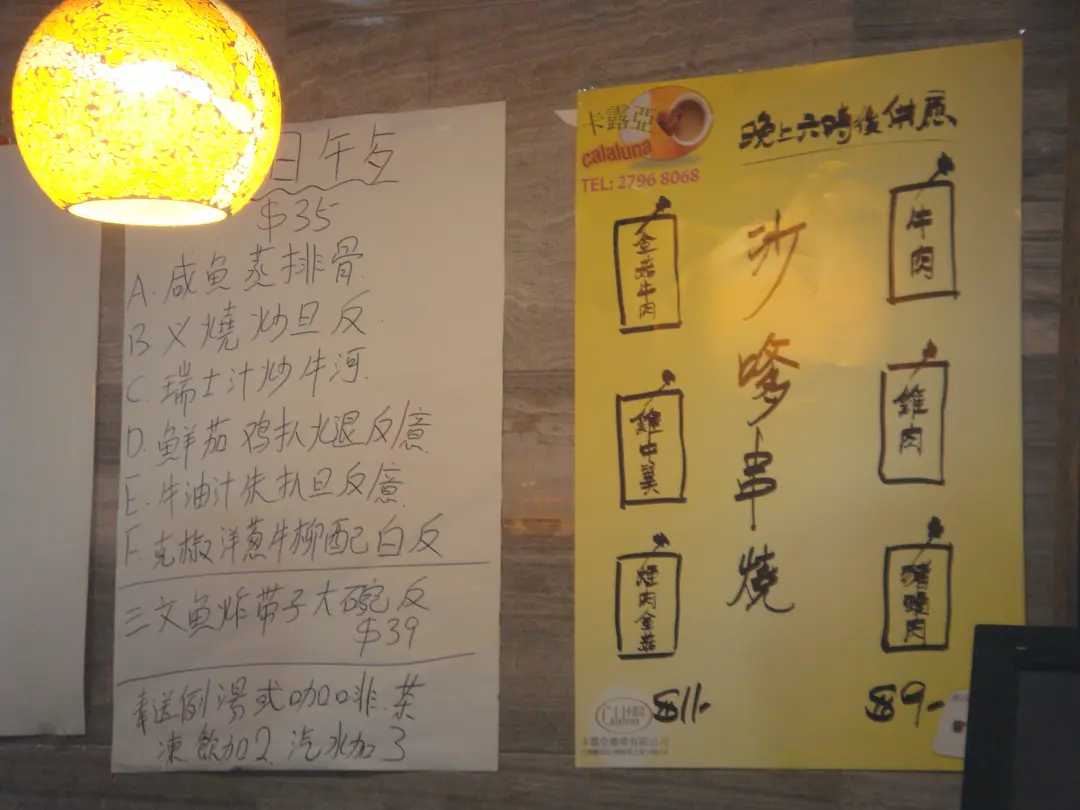 日午歺
$35
A. 咸魚蒸排骨
B 义燒炒旦反
C. 瑞士汁炒牛河
D. 鮮茄鸡扒火退反意
E. 牛油汁朱扒旦反意
F. 克椒洋葱牛柳配白反
三文魚炸带子大碗反
$39
奉送例湯或咖啡.茶
凍飲加2 汽水加3
卡露亞
calaluna
TEL: 2796 8068
晚上六時後供應
沙嗲串燒
金菇牛肉
雞中翼
煙肉金菇
$11-
牛肉
雞肉
豬頸肉
$9-
Calaluna